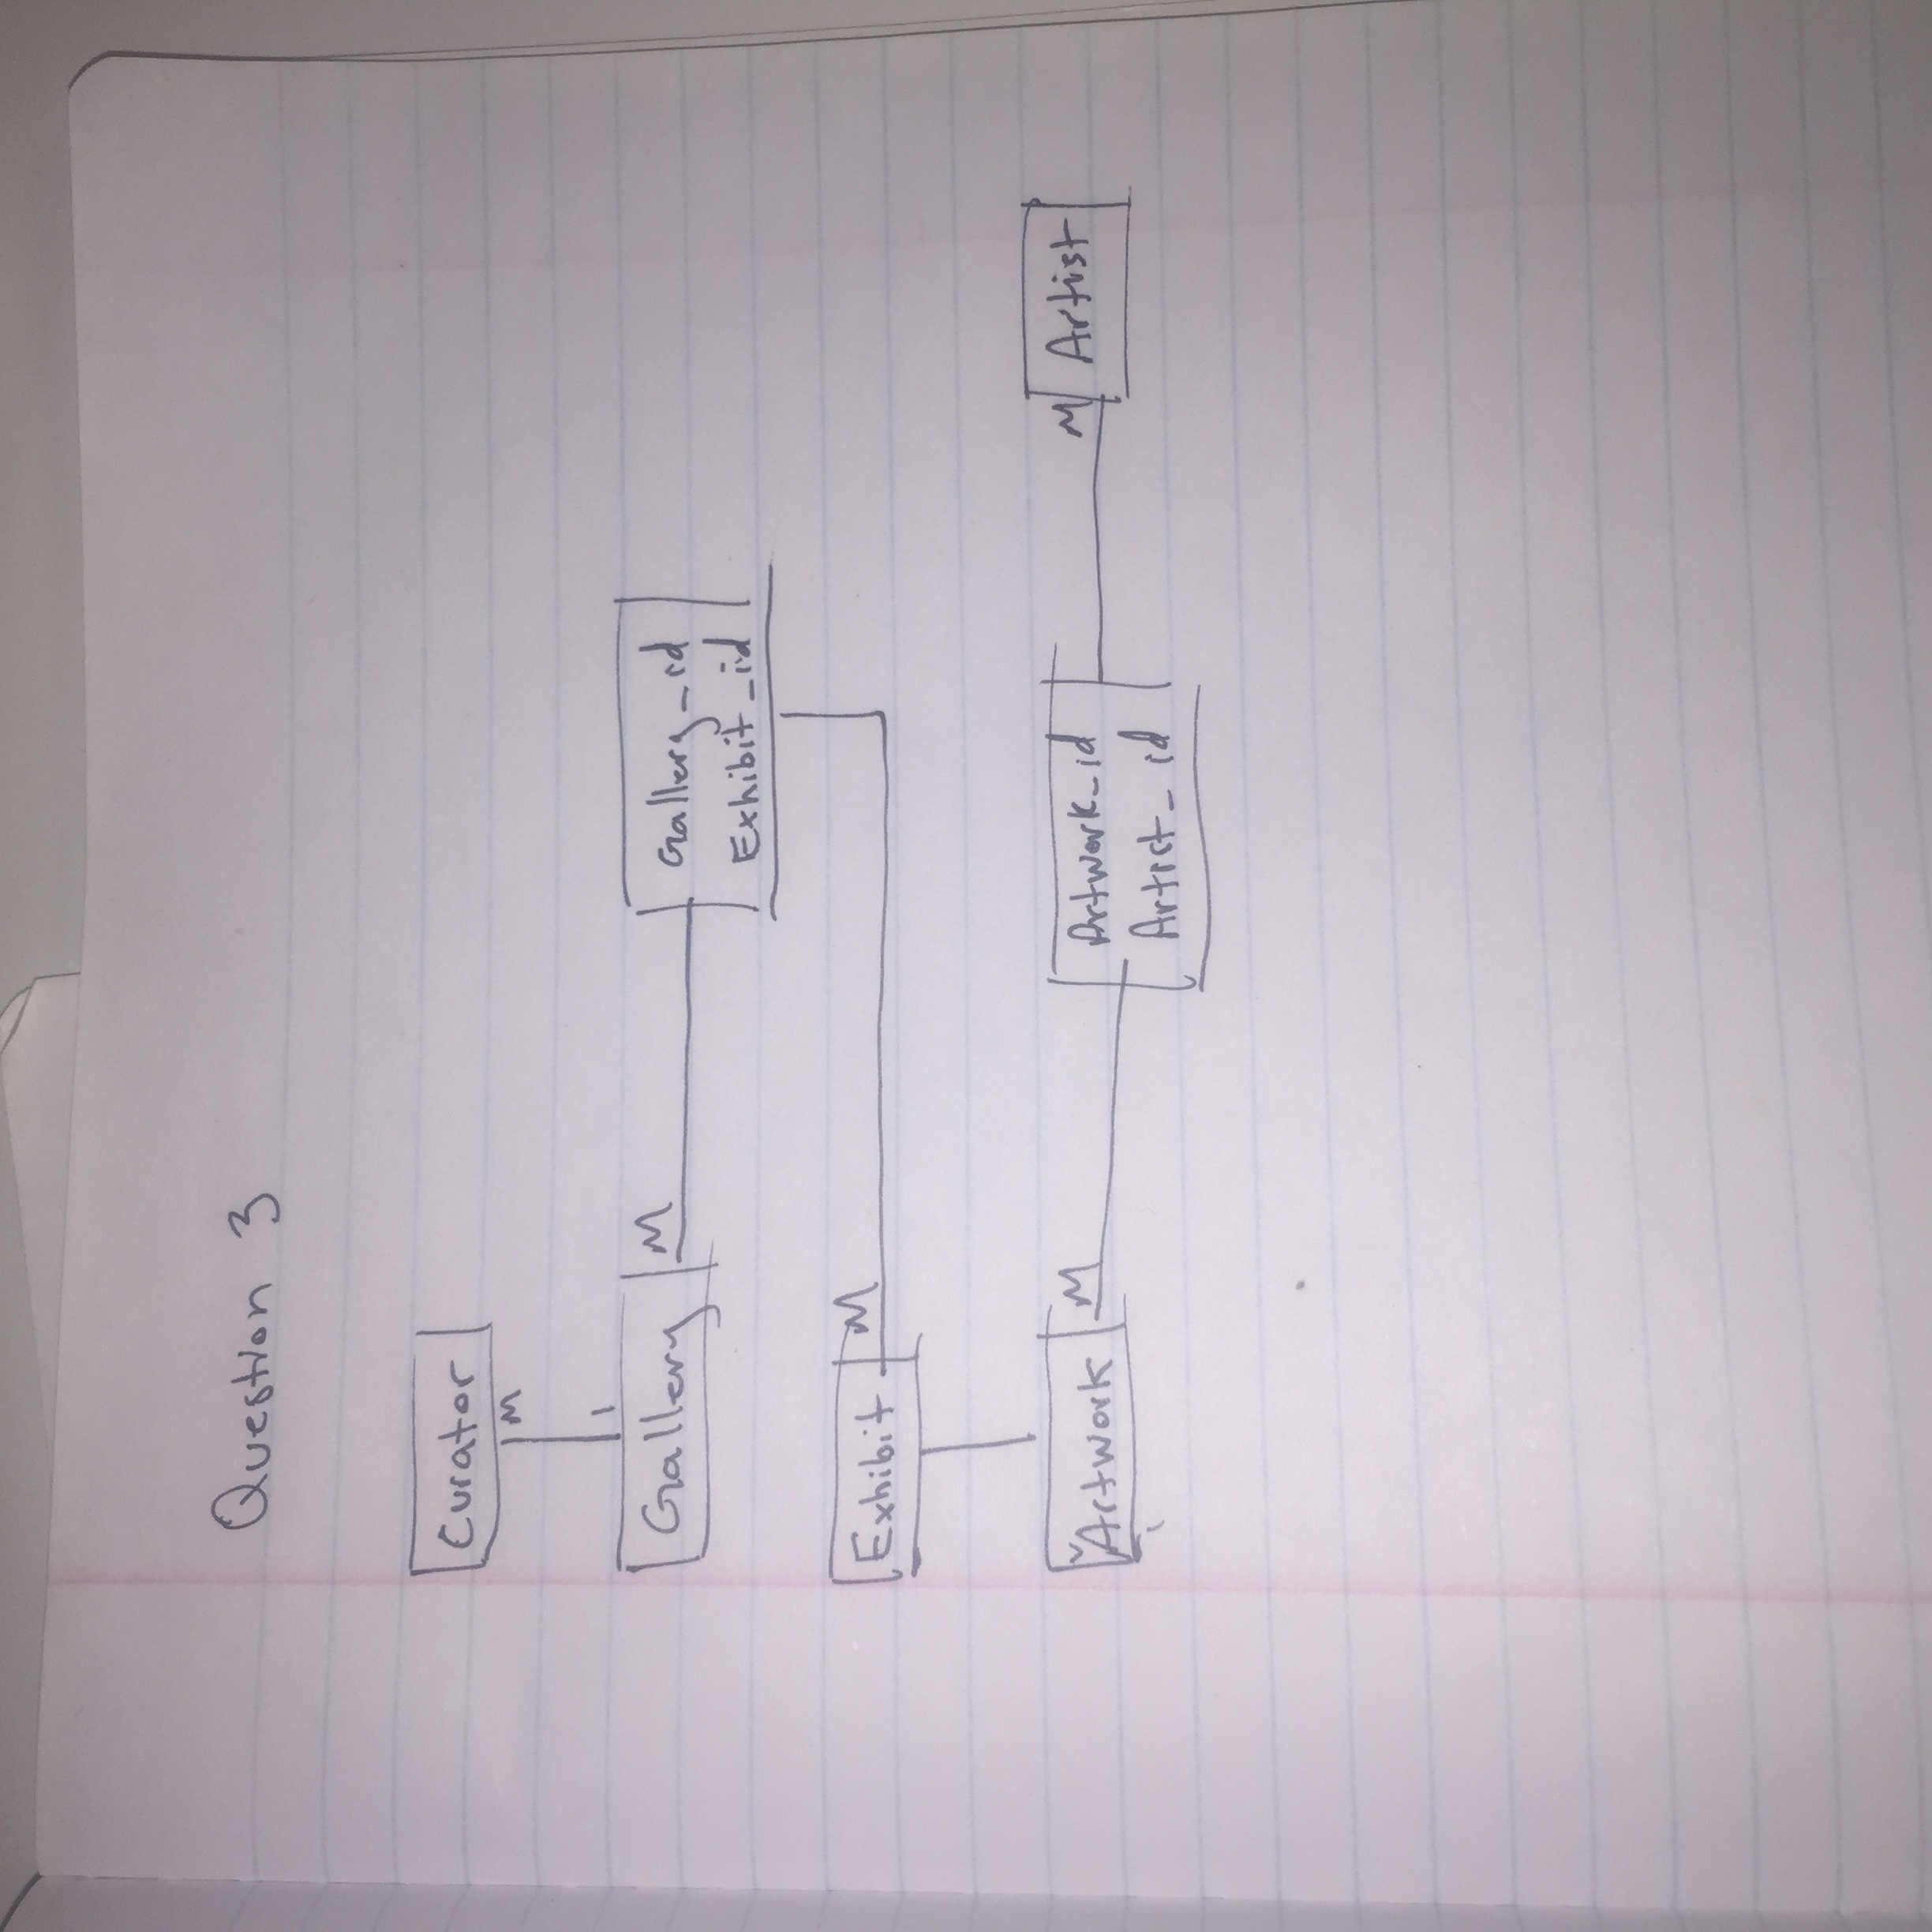 Question 3
Curator
M
1
Gallery M
Gallery_id
Exhibit_id
Exhibit M
Artwork M
Artwork_id
Artist_id
M Artist